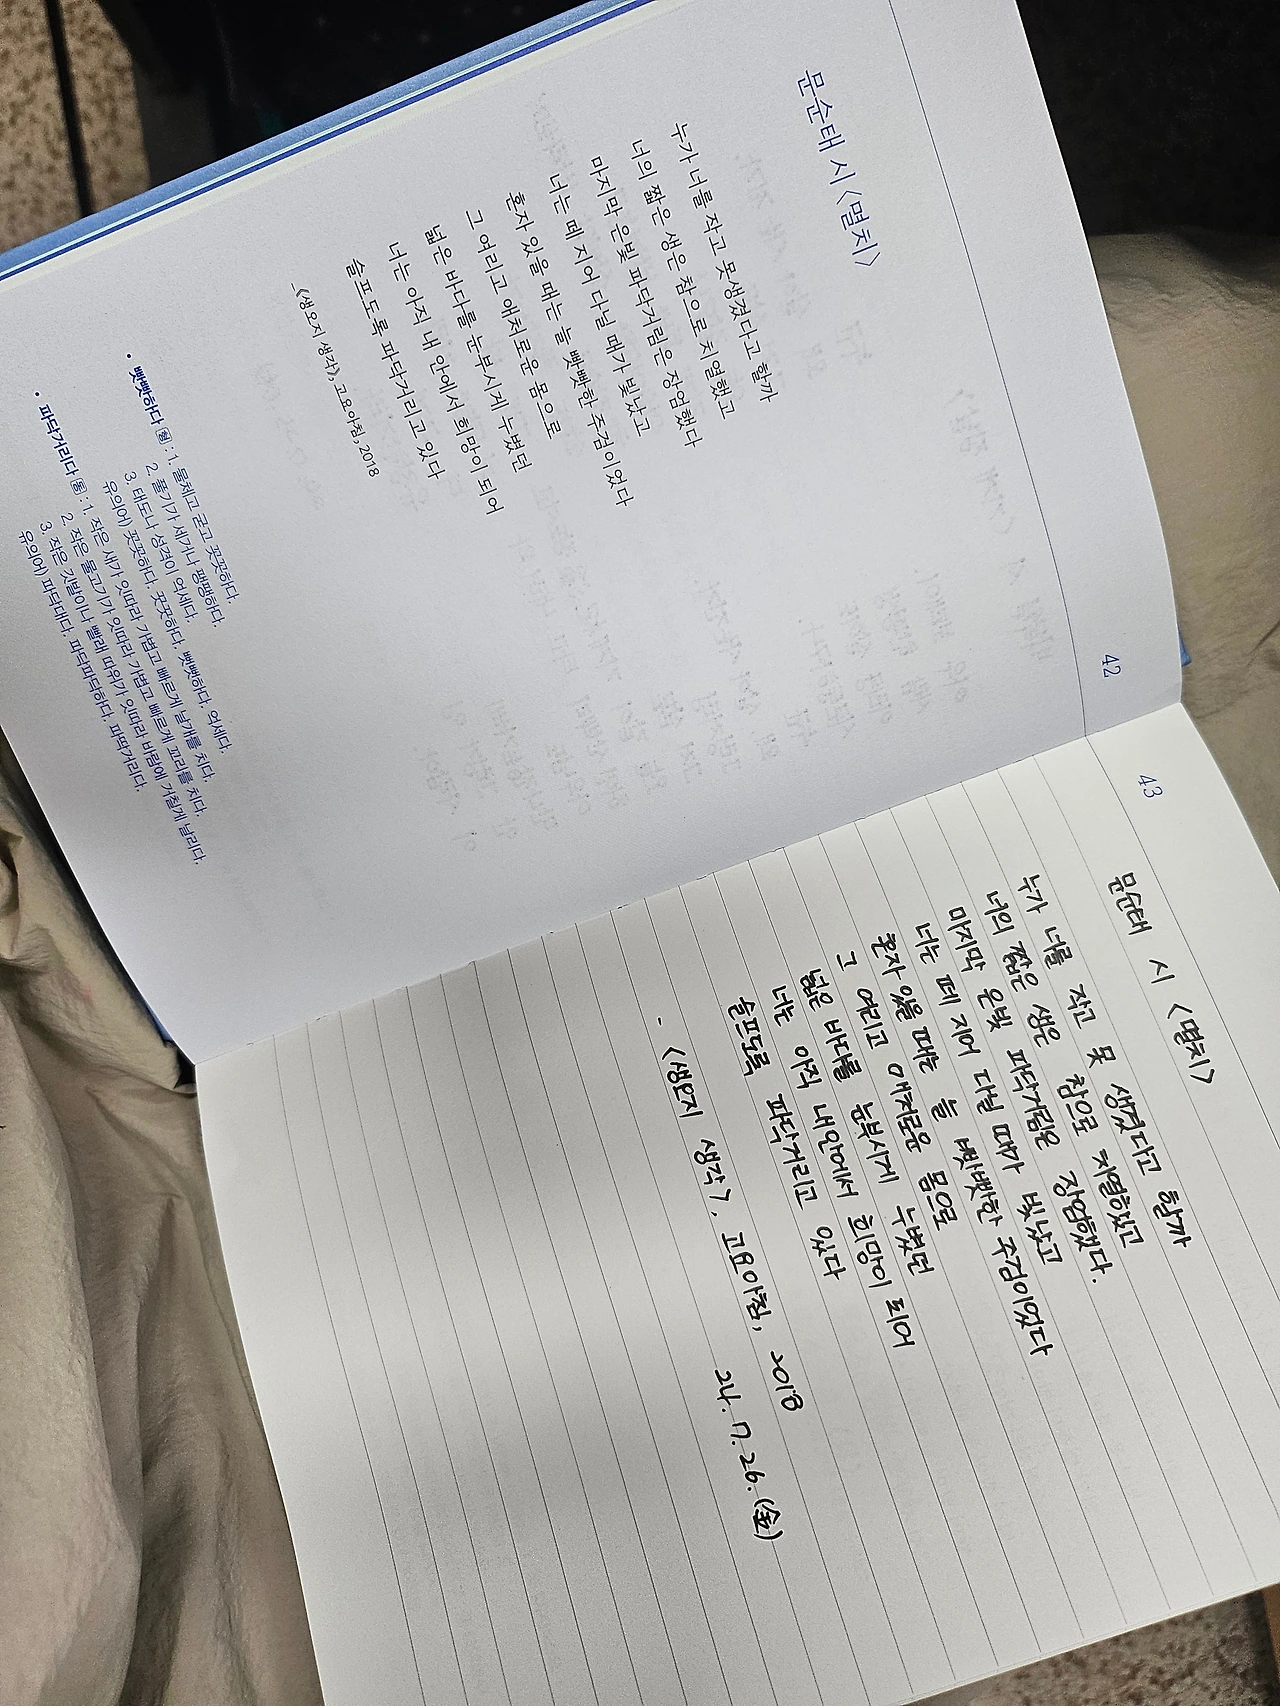 문순태 시 <멸치>
누가 너를 작고 못생겼다고 할까
너의 짧은 생은 참으로 치열했고
마지막 은빛 파닥거림은 장엄했다
너는 떼 지어 다닐 때가 빛났고
혼자 있을 때는 늘 빳빳한 주검이었다
그 여리고 애처로운 몸으로
넓은 바다를 눈부시게 누볐던
너는 아직 내 안에서 희망이 되어
슬프도록 파닥거리고 있다
_《생오지 생각》, 고요아침, 2018
• 빳빳하다 [형] : 1. 물체고 굳고 꼿꼿하다.
2. 풀기가 세거나 팽팽하다.
3. 태도나 성격이 억세다.
유의어) 꼿꼿하다. 꿋꿋하다. 뻣뻣하다. 억세다.
• 파닥거리다 [동] : 1. 작은 새가 잇따라 가볍고 빠르게 날개를 치다.
2. 작은 물고기가 잇따라 가볍고 빠르게 꼬리를 치다.
3. 작은 깃발이나 빨래 따위가 잇따라 바람에 거칠게 날리다.
유의어) 파닥대다. 파닥파닥하다. 파딱거리다.
42
43
문순태 시 <멸치>
누가 너를 작고 못 생겼다고 할까
너의 짧은 생은 참으로 치열했고
마지막 은빛 파닥거림은 장엄했다.
너는 떼 지어 다닐 때가 빛났고
혼자 있을 때는 늘 빳빳한 주검이었다
그 여리고 애처로운 몸으로
넓은 바다를 눈부시게 누볐던
너는 아직 내 안에서 희망이 되어
슬프도록 파닥거리고 있다
- <생오지 생각>, 고요아침, 2018
24. 7. 26. (金)